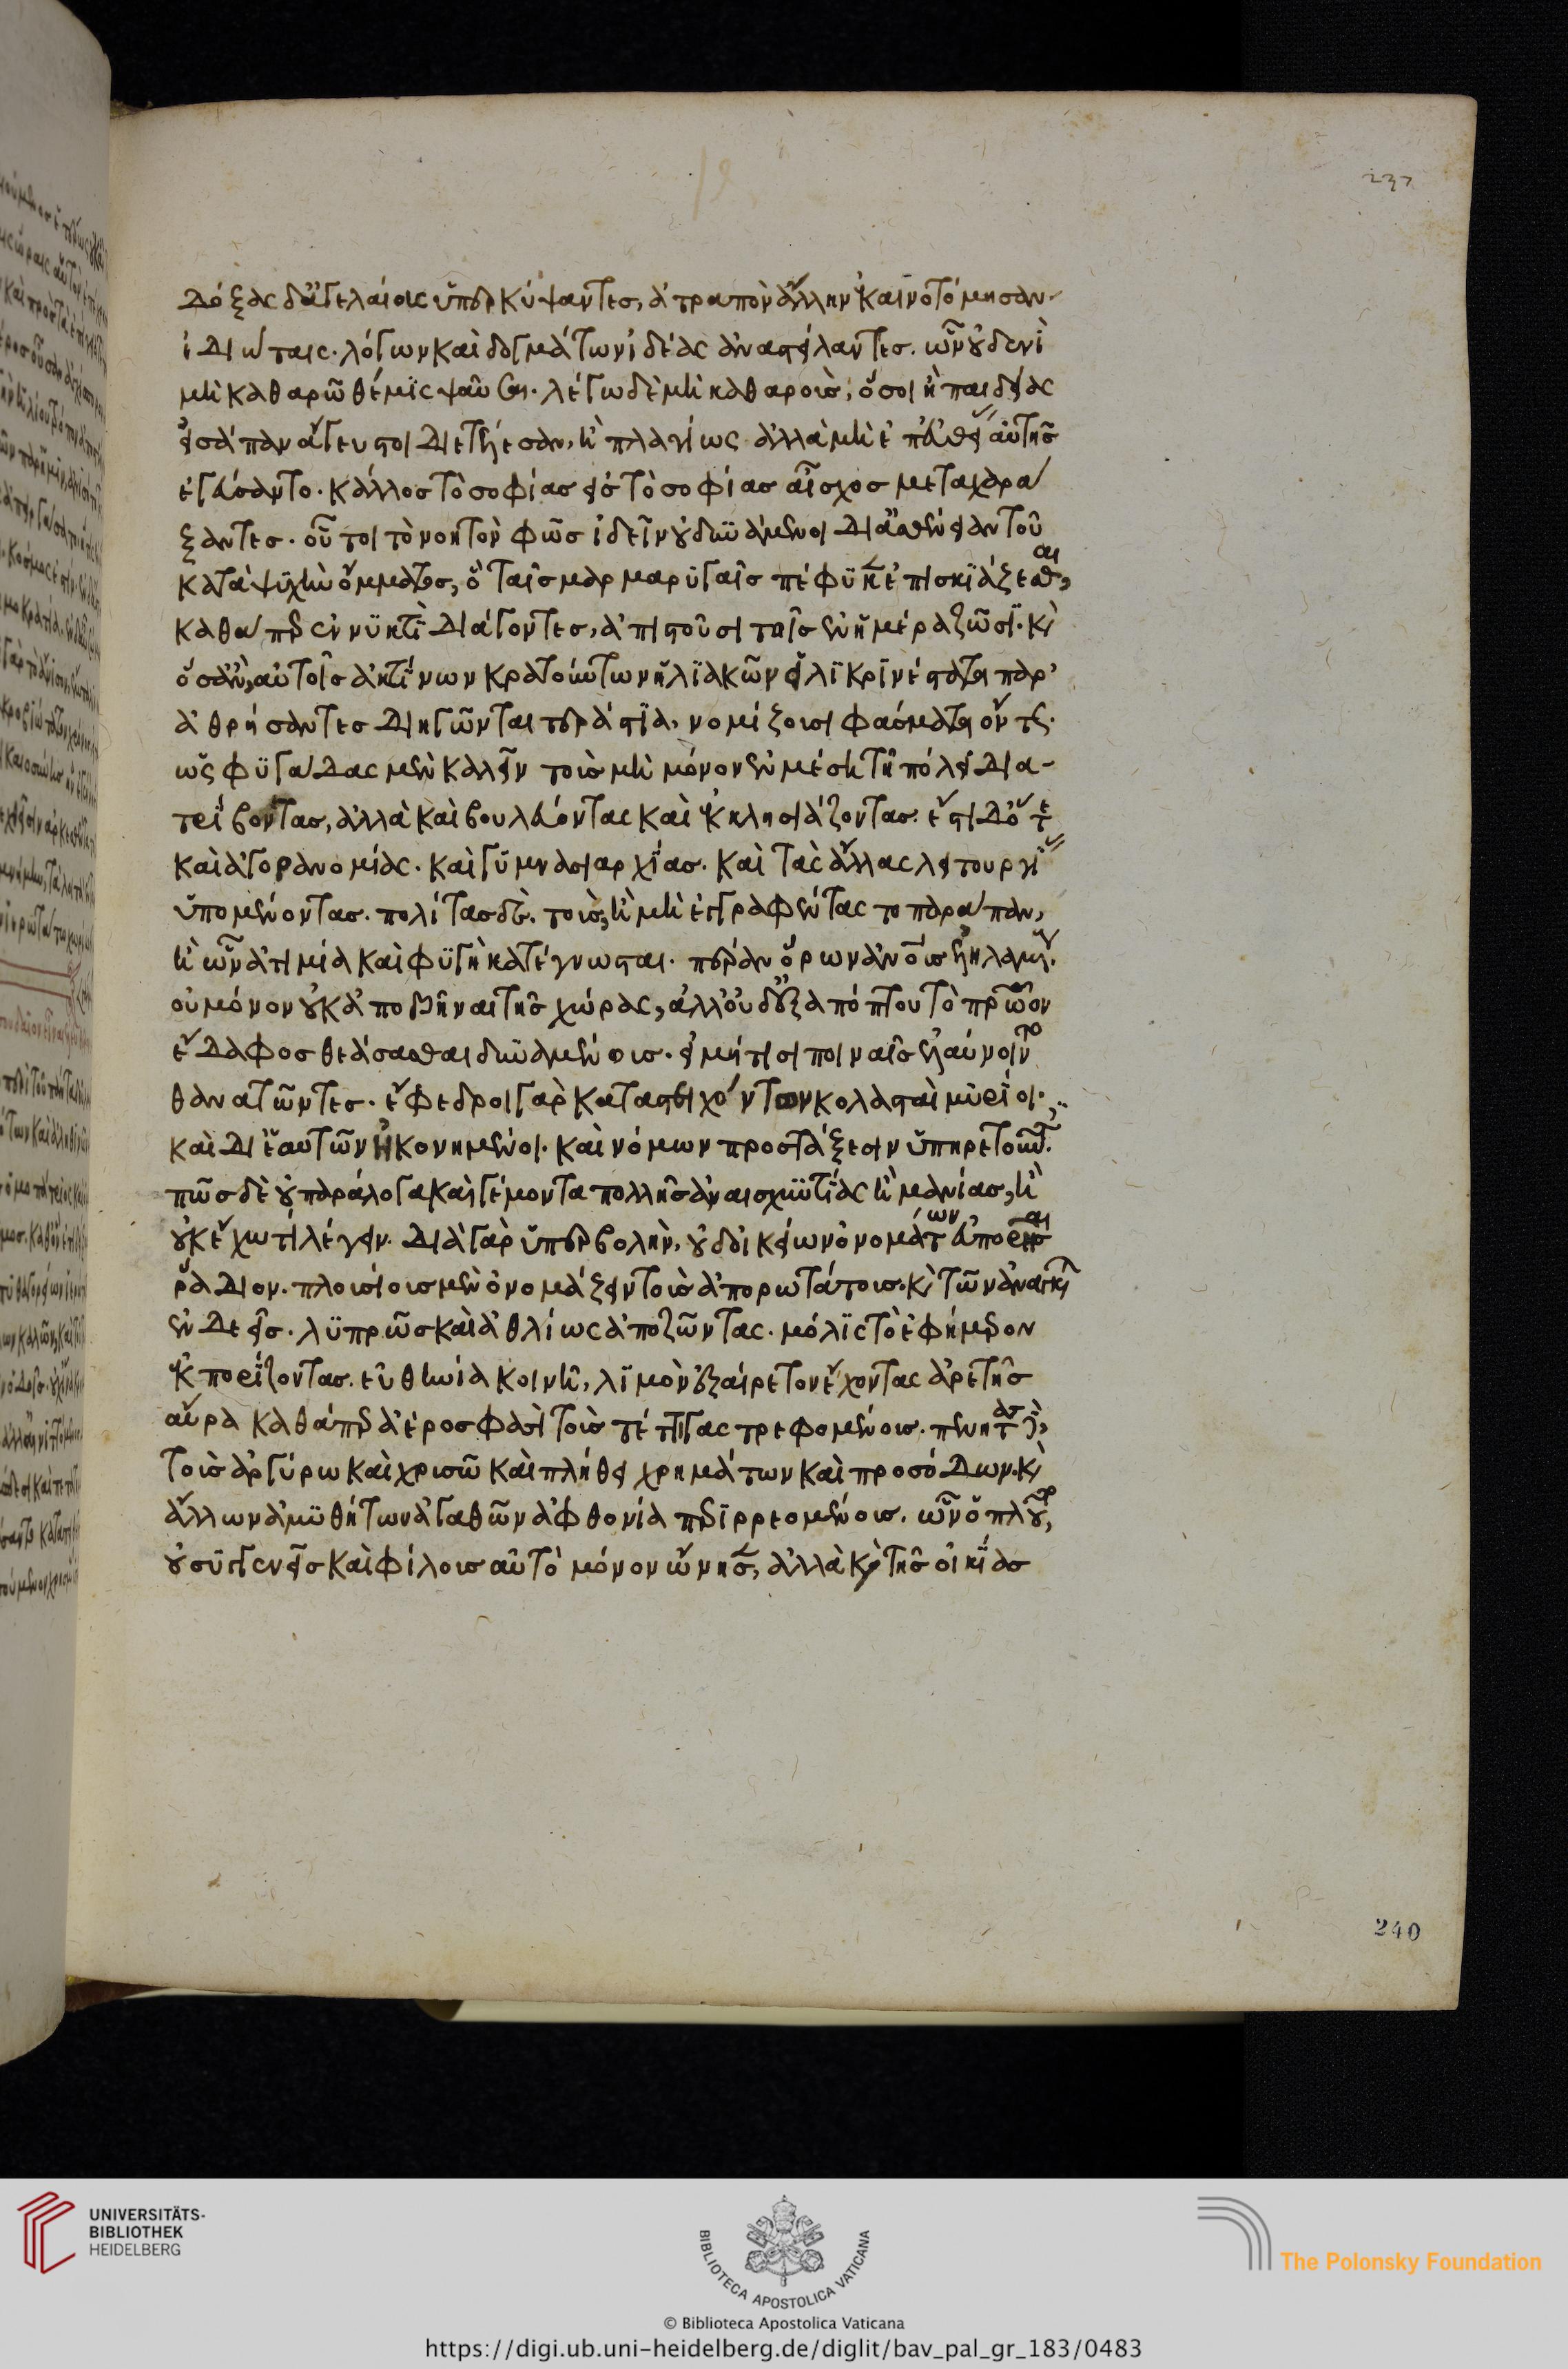 δόξας δ' ἀγελαίοις ὑπερκύψαντες, ἀτραπὸν ἄλλην ἐκαινοτόμησαν
ἰδιώταις· λόγων καὶ δογμάτων ἰδέας ἀναστείλαντες. ὧν οὐδενὶ
μὴ καθαρῶ θέμις ψαύειν· λέγω δὲ μὴ καθαροὺς, ὅσοι ἢ παιδείας
εἰσάπαν ἄγευστοι διετέλεσαν, ἢ πλαγίως ἀλλὰ μὴ ἐπ' εὐθείας αὐτῆς
ἐγεύσαντο. κάλλος τὸ σοφίας εἰς τὸ σοφίας αἶσχος μεταχαρά
ξαντες. οὗτοι τὸ νοητὸν φῶς ἰδεῖν οὐ δυνάμενοι δι' ἀσθένειαν τοῦ
κατὰ ψυχὴν ὄμματος, ὃ ταῖς μαρμαρυγαῖς πέφυκεν ἐπισκιάζεσθαι,
καθάπερ ἐν νυκτὶ διάγοντες, ἀπιστοῦσι τοῖς ἐν ἡμέρα ζῶσι. καὶ
ὅσ' ἂν αὐτοῖς ἀκτίνων κρατούντων ἡλιακῶν εἰλικρινέστατα παρ'
ἀθρήσαντες διηγῶνται τεράστια, νομίζουσι φάσματα ὄντες·
ὡς φυγάδας μὲν καλεῖν τοὺς μὴ μόνον ἐν μέση τῆ πόλει δια-
τρίβοντας, ἀλλὰ καὶ βουλεύοντας καὶ ἐκκλησιάζοντας· ἔστι δ' ὅτε
καὶ ἀγορανομίας· καὶ γυμνασιαρχίας· καὶ τὰς ἄλλας λειτουργίας
ὑπομένοντας. πολίτας δὲ, τοὺς ἢ μὴ ἐγγραφέντας τοπαράπαν,
ἢ ὧν ἀτιμία καὶ φυγὴ κατέγνωσται· πέραν ὅρων ἀνοὺς ἐληλαμένους
οὐ μόνον οὐκ ἀποβῆναι τῆς χώρας, ἀλλ' οὐδ' ἐξ ἀπόπτου τὸ πρῶον
ἔδαφος θεάσασθαι δυναμένοις. εἰ μή τισι ποιναῖς ἐλαύνοιντο
θανατῶντες. ἔφεδροι γὰρ καταστειχόντων κολασταὶ μυρίοι·
καὶ δι' ἑαυτῶν ἠκονημένοι. καὶ νόμων προστάξεσιν ὑπηρετοῦντες.
πῶς δὲ οὐ παράλογα καὶ γέμοντα πολλῆς ἀναισχυντίας ἢ μανίας, ἢ
οὐκ ἔχω τί λέγειν. διὰ γὰρ ὑπερβολὴν, οὐδ' οἰκείων ὀνομάτων εὐπορῆσαι
ῥάδιον. πλουσίους μὲν ὀνομάζειν τοὺς ἀπορωτάτους. καὶ τῶν ἀναγκαί
ἐνδεεῖς. λυπρῶς καὶ ἀθλίως ἀποζῶντας. μόλις τὸ ἐφήμερον
ἐκπορίζοντας. εὐθηνία κοινῆ, λιμὸν ἐξαίρετον ἔχοντας ἀρετῆς
αὔρα καθάπερ ἀέρος φασὶ τοὺς τέττιγας τρεφομένους. πένητας δὲ,
τοὺς ἀργύρω καὶ χρυσῶ καὶ πλήθει χρημάτων καὶ προσόδων. καὶ
ἄλλων ἀμυθήτων ἀγαθῶν ἀφθονία περιρρεομένους. ὧν ὁ πλοῦτος,
οὐ συγγενεῖς καὶ φίλους αὐτὸ μόνον ὤνησε, ἀλλὰ καὶ τῆς οἰκίας
237
240
UNIVERSITÄTS-
BIBLIOTHEK
HEIDELBERG
BIBLIOTECA APOSTOLICA VATICANA
The Polonsky Foundation
© Biblioteca Apostolica Vaticana
https://digi.ub.uni-heidelberg.de/diglit/bav_pal_gr_183/0483